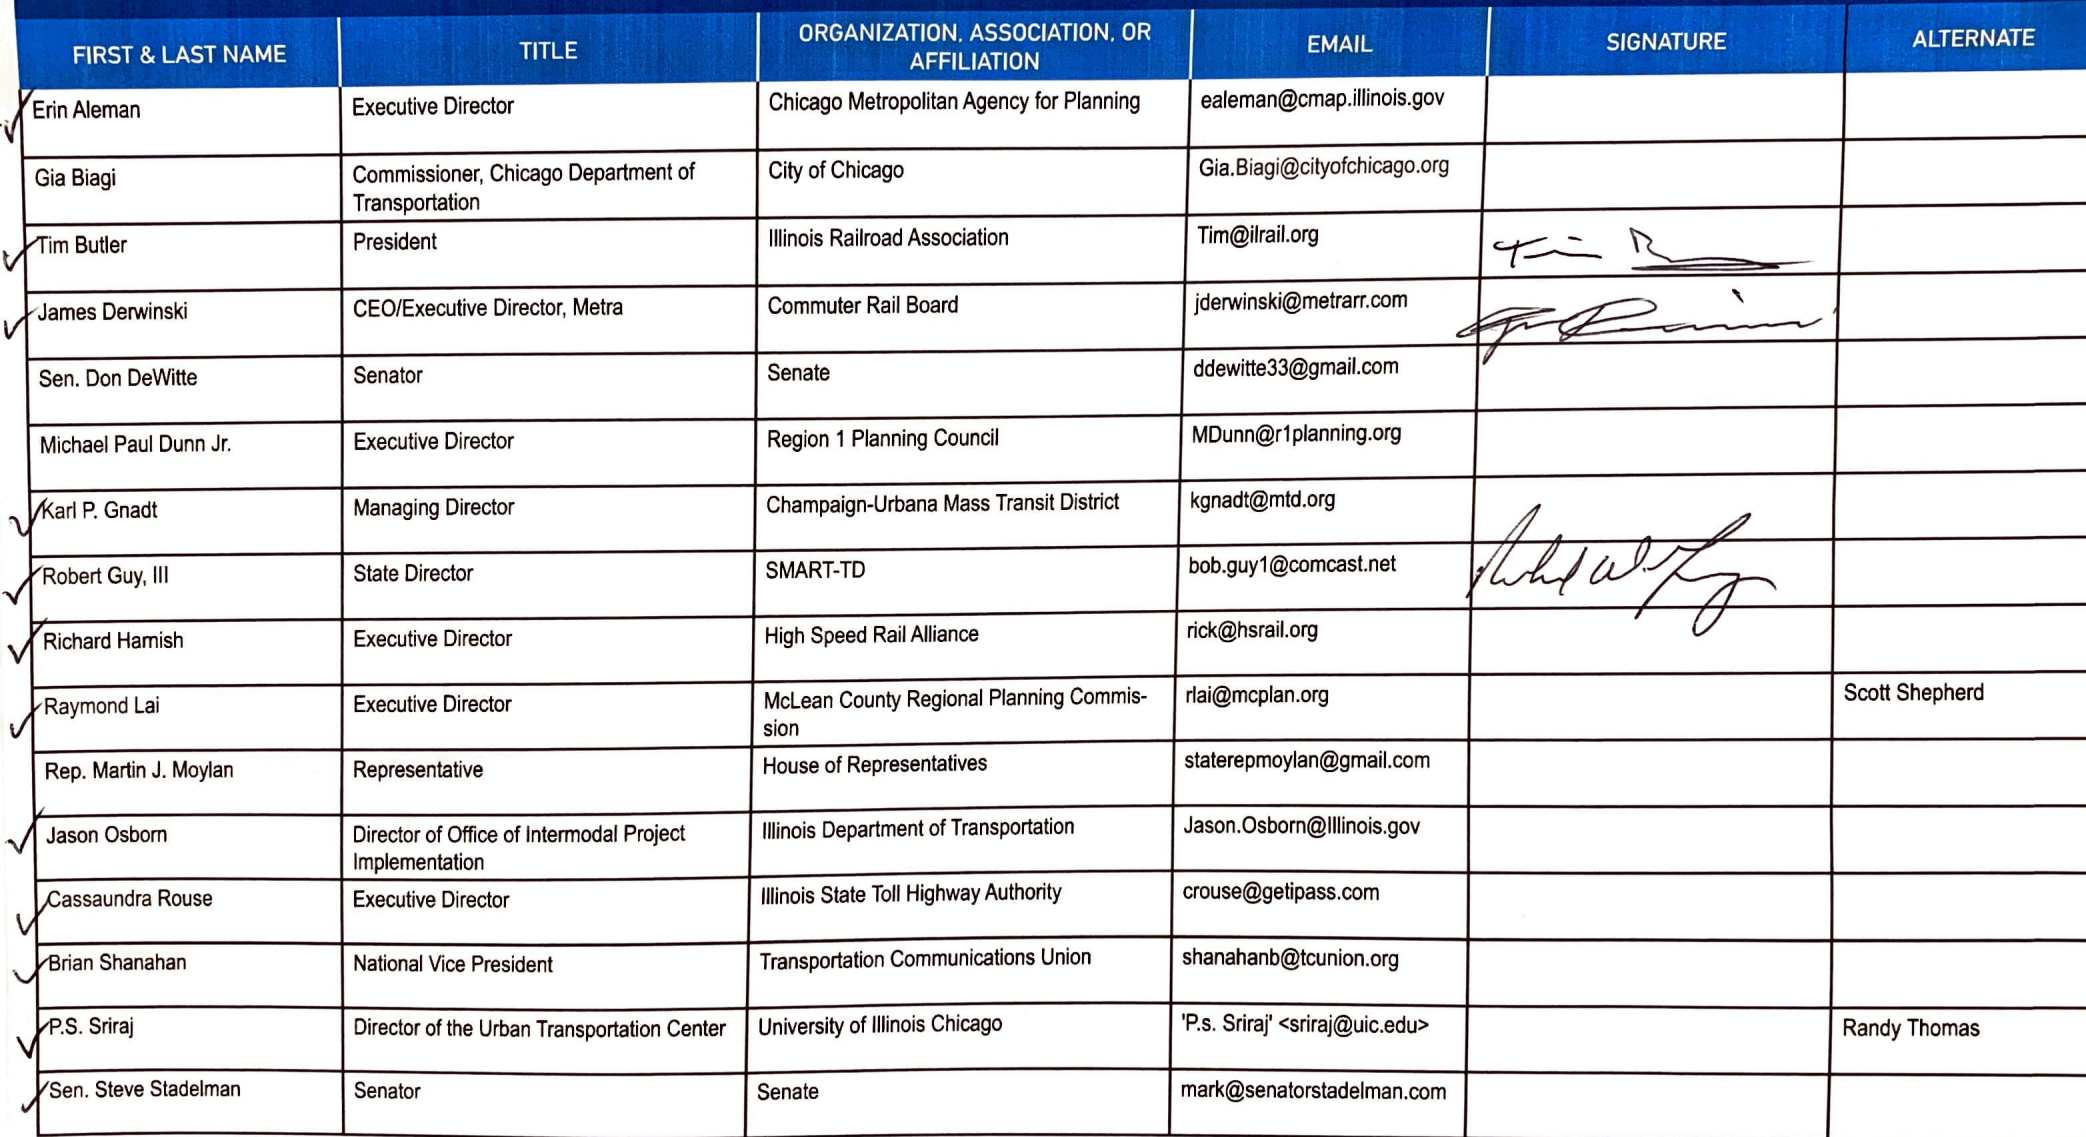 FIRST & LAST NAME
TITLE
ORGANIZATION, ASSOCIATION, OR
AFFILIATION
EMAIL
SIGNATURE
ALTERNATE
Erin Aleman
Executive Director
Chicago Metropolitan Agency for Planning
ealeman@cmap.illinois.gov
Gia Biagi
Commissioner, Chicago Department of
Transportation
City of Chicago
Gia.Biagi@cityofchicago.org
Tim Butler
President
Illinois Railroad Association
Tim@ilrail.org
Tim
James Derwinski
CEO/Executive Director, Metra
Commuter Rail Board
jderwinski@metrarr.com
Sen. Don DeWitte
Senator
Senate
ddewitte33@gmail.com
Michael Paul Dunn Jr.
Executive Director
Region 1 Planning Council
MDunn@r1planning.org
Karl P. Gnadt
Managing Director
Champaign-Urbana Mass Transit District
kgnadt@mtd.org
Robert Guy, III
State Director
SMART-TD
bob.guy1@comcast.net
Richard Harnish
Executive Director
High Speed Rail Alliance
rick@hsrail.org
Raymond Lai
Executive Director
McLean County Regional Planning Commis-
sion
rlai@mcplan.org
Scott Shepherd
Rep. Martin J. Moylan
Representative
House of Representatives
staterepmoylan@gmail.com
Jason Osborn
Director of Office of Intermodal Project
Implementation
Illinois Department of Transportation
Jason.Osborn@Illinois.gov
Cassaundra Rouse
Executive Director
Illinois State Toll Highway Authority
crouse@getipass.com
Brian Shanahan
National Vice President
Transportation Communications Union
shanahanb@tcunion.org
P.S. Sriraj
Director of the Urban Transportation Center
University of Illinois Chicago
'P.s. Sriraj' <sriraj@uic.edu>
Randy Thomas
Sen. Steve Stadelman
Senator
Senate
mark@senatorstadelman.com